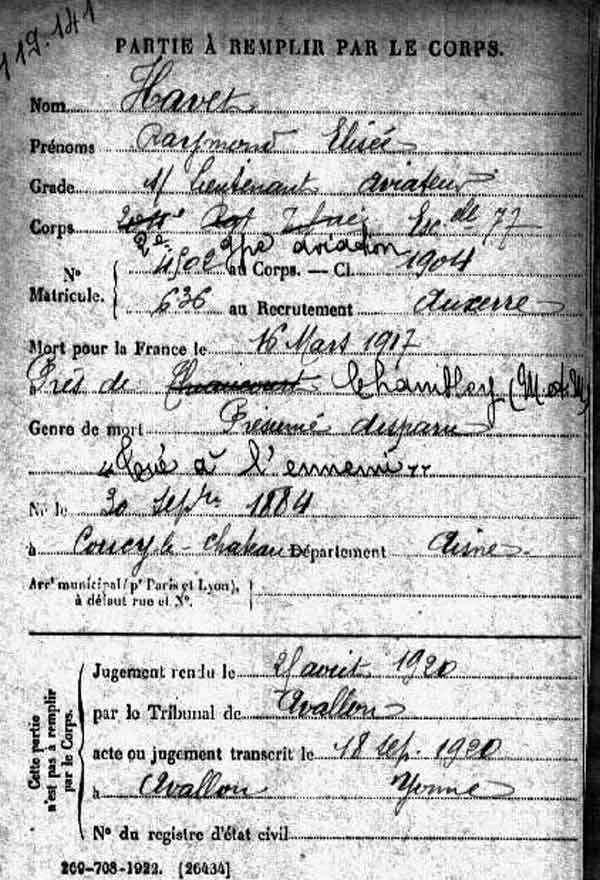 119.141
PARTIE À REMPLIR PAR LE CORPS.
Nom Havet
Prénoms Raymond Elisée
Grade s/ Lieutenant aviateur
Corps Esc lle 77
2e gpe aviation
N° Matricule. 4902 au Corps. — Cl. 1904
636 au Recrutement Auxerre
Mort pour la France le 16 Mars 1917
Près de Chambley (M et M)
Genre de mort Présumé disparu
"Tué à l'ennemi"
Né le 30 Septre 1884
à Coucy-le-Chateau Département Aisne
Arrt municipal (pr Paris et Lyon),
à défaut rue et N°.
Cette partie n'est pas à remplir par le Corps.
Jugement rendu le août 1920
par le Tribunal de Avallon
acte ou jugement transcrit le 18 Sep. 1920
à Avallon Yonne
N° du registre d'état civil
269-708-1922. [26434]